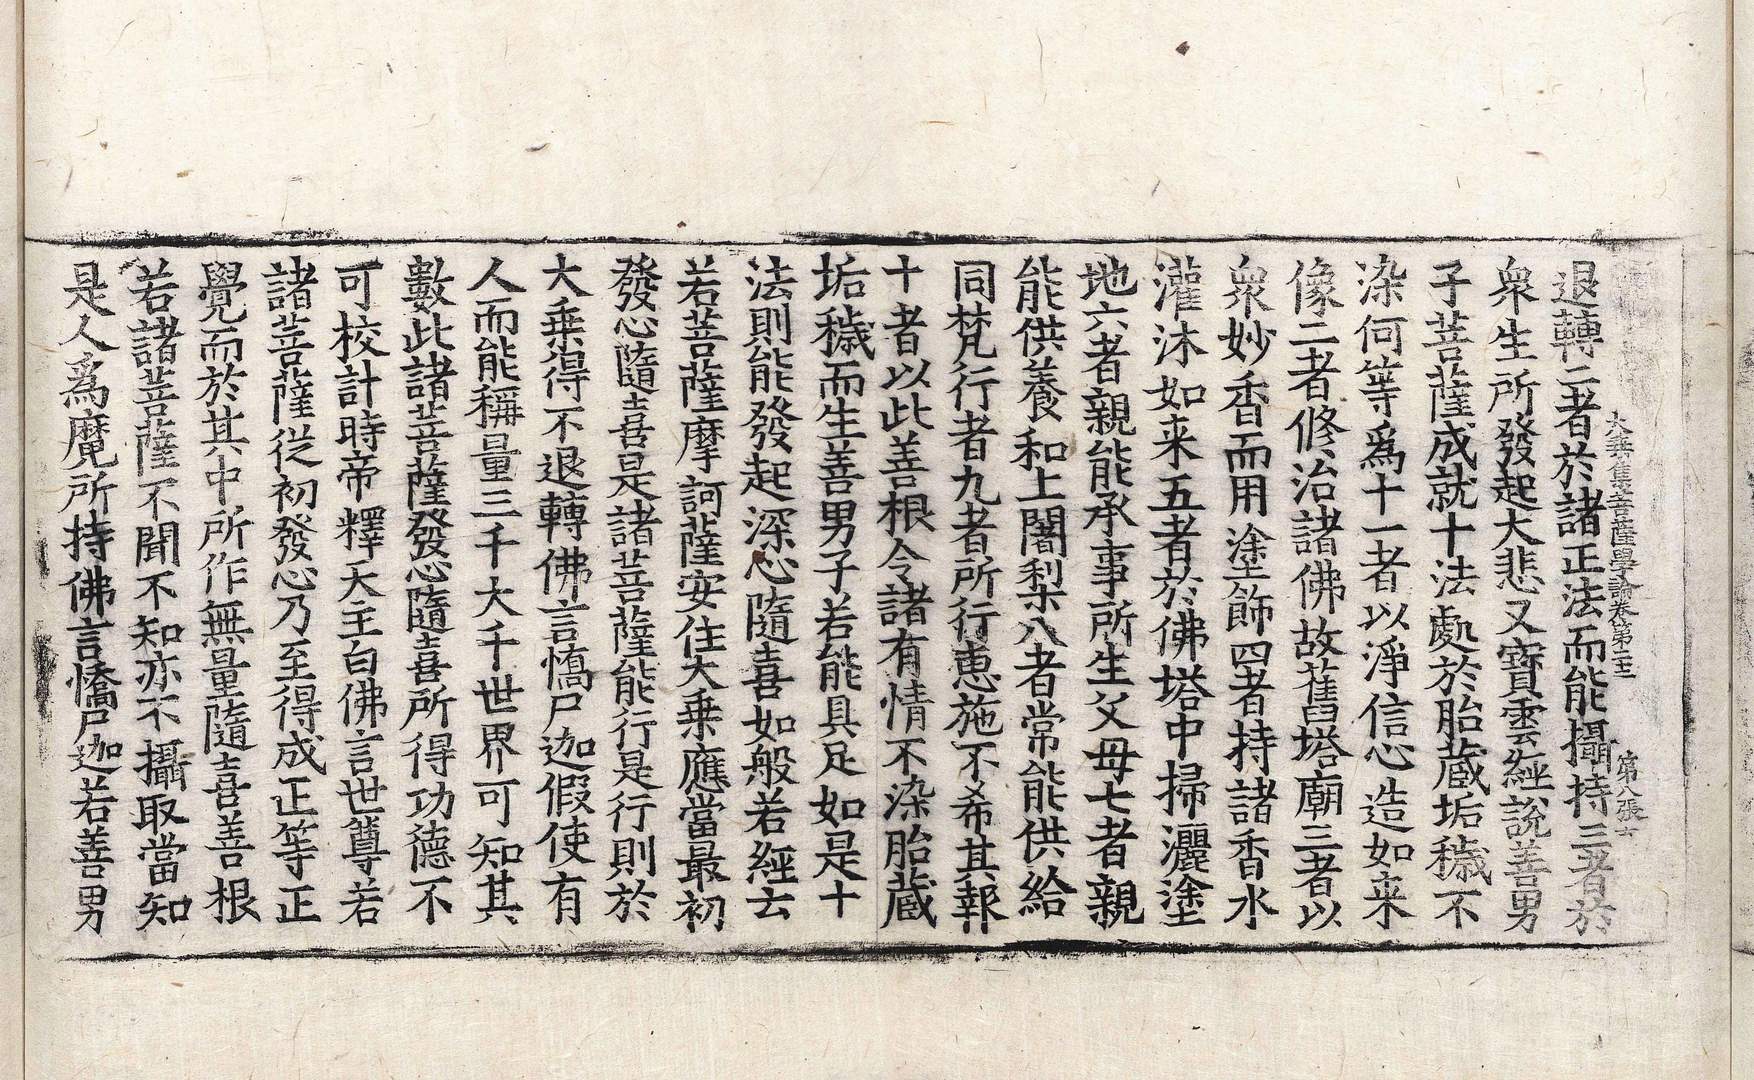 大乗集菩薩學論卷第二十三 第八張
退轉二者於諸正法而能攝持三者於
衆生所發起大悲又寶雲經說善男
子菩薩成就十法處於胎藏垢穢不
染何等爲十一者以淨信心造如来
像二者修治諸佛故舊塔廟三者以
衆妙香而用塗飾四者持諸香水
灌沐如来五者於佛塔中掃灑塗
地六者親能承事所生父母七者親
能供養和上闍梨八者常能供給
同梵行者九者所行惠施不希其報
十者以此善根令諸有情不染胎藏
垢穢而生善男子若能具足如是十
法則能發起深心隨喜如般若經云
若菩薩摩訶薩安住大乗應當最初
發心隨喜是諸菩薩能行是行則於
大乗得不退轉佛言憍尸迦假使有
人而能稱量三千大千世界可知其
數此諸菩薩發心隨喜所得功德不
可校計時帝釋天主白佛言世尊若
諸菩薩從初發心乃至得成正等正
覺而於其中所作無量隨喜善根
若諸菩薩不聞不知亦不攝取當知
是人爲魔所持佛言憍尸迦若善男